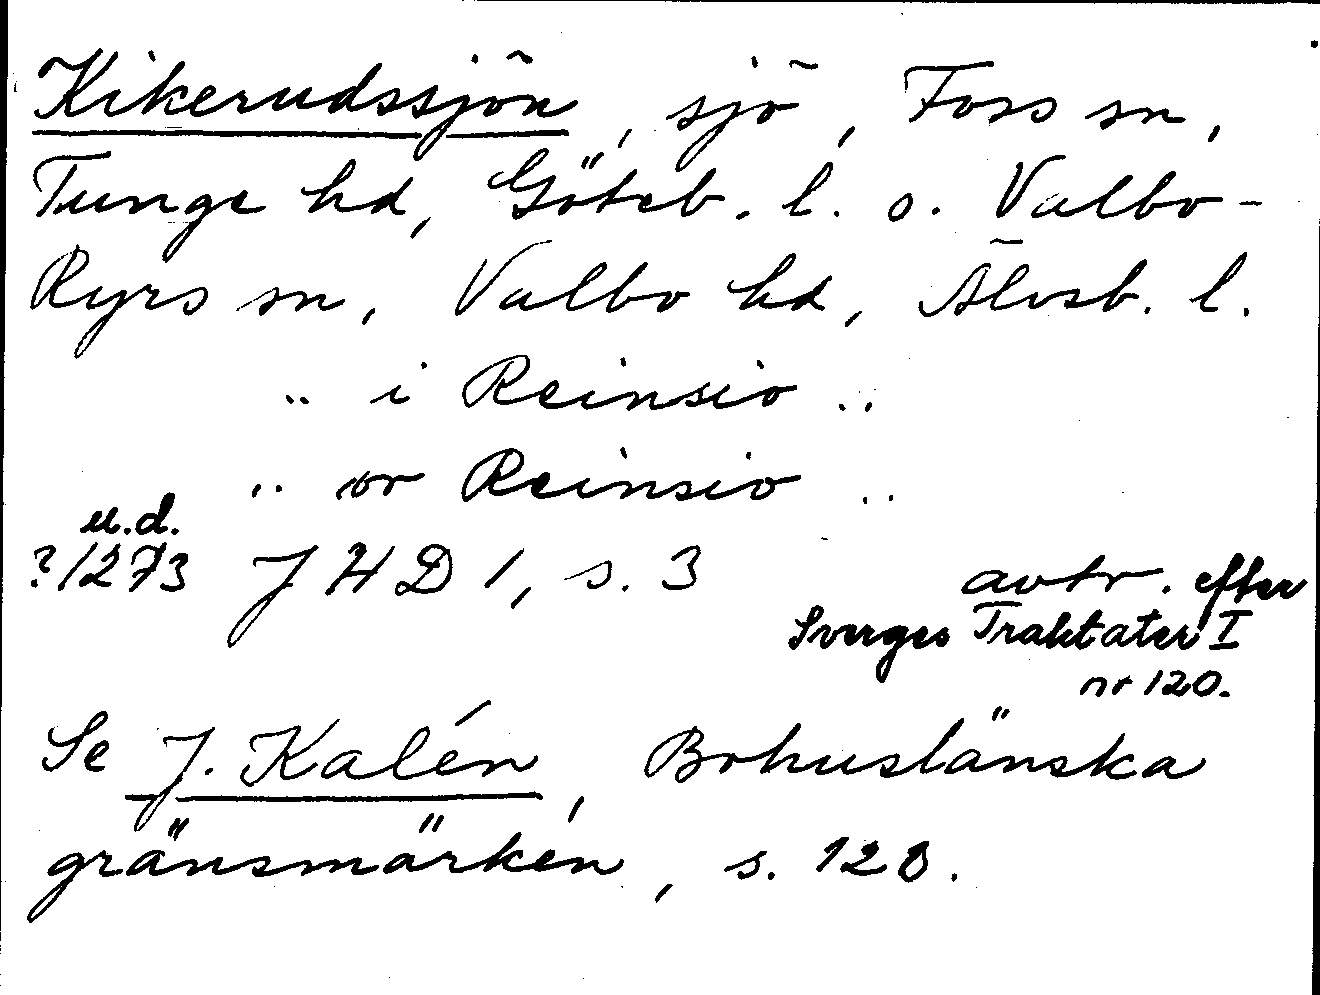 Kikerudssjön, sjö, Foss sn,
Tunge hd, Göteb. l. o. Valbo-
Ryrs sn, Valbo hd, Älvsb. l.
.. i Reinsio ..
.. or Reinsio ..
u.d.
?1273 JHD 1, s. 3 avtr. efter
Sverges Traktater I
nr 120.
Se J. Kalén, Bohuslänska
gränsmärken, s. 128.